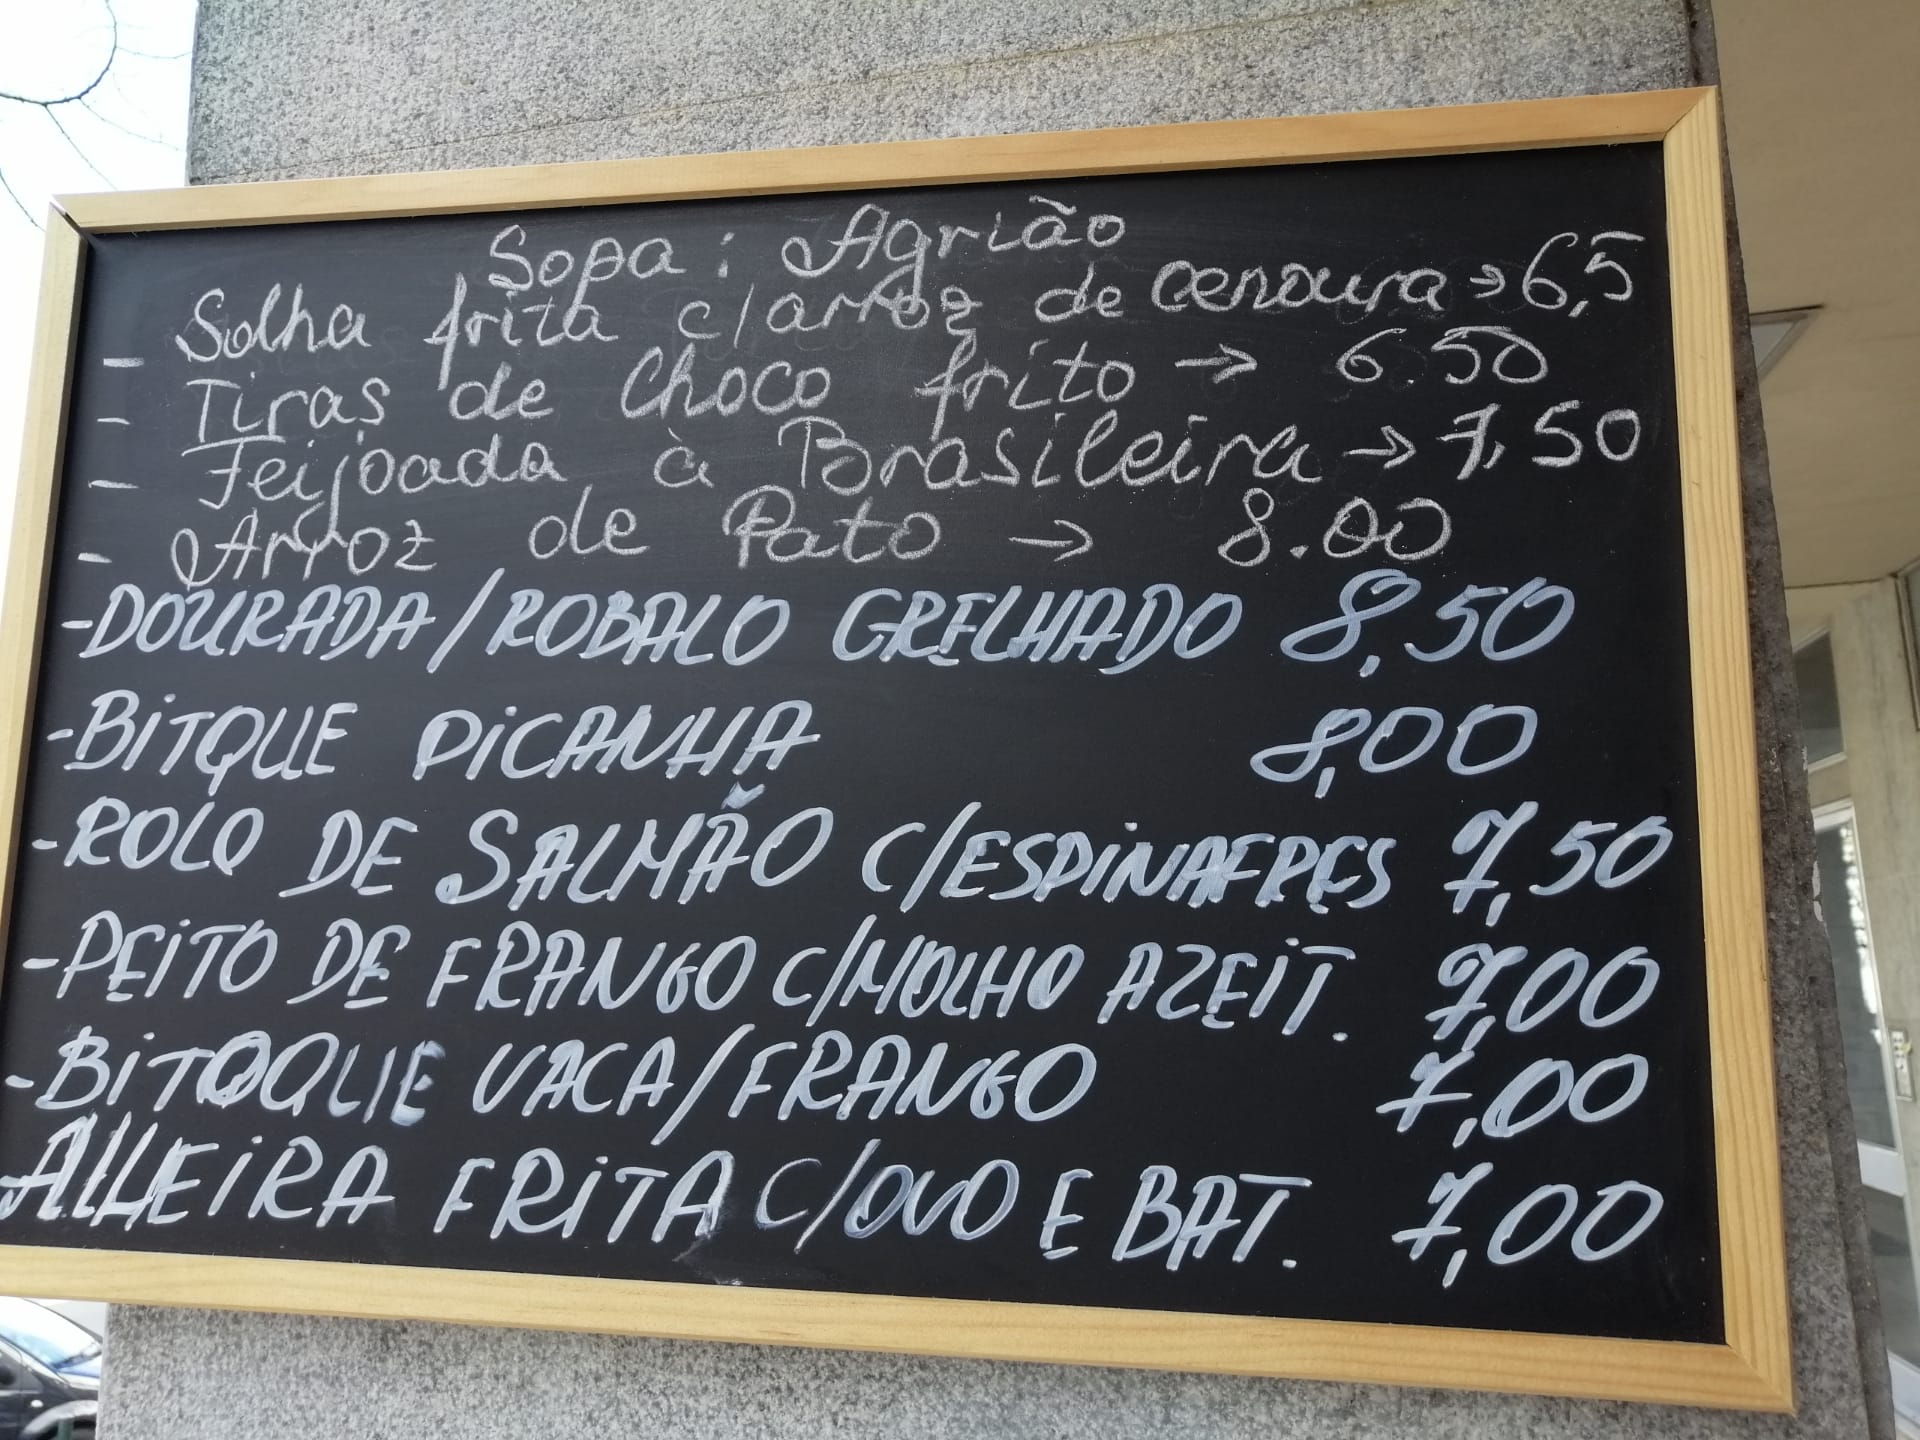 Sopa: Agrião
- Solha frita c/arroz de cenoura → 6,5
- Tiras de Choco frito → 6.50
- Feijoada à Brasileira → 7,50
- Arroz de Pato → 8.00
-DOURADA/ROBALO GRELHADO 8,50
-BITQUE PICANHA 8,00
-ROLO DE SALMÃO C/ESPINAFRES 7,50
-PEITO DE FRANGO C/MOLHO AZEIT. 7,00
-BITOQUE VACA/FRANGO 7,00
ALHEIRA FRITA C/OVO E BAT. 7,00